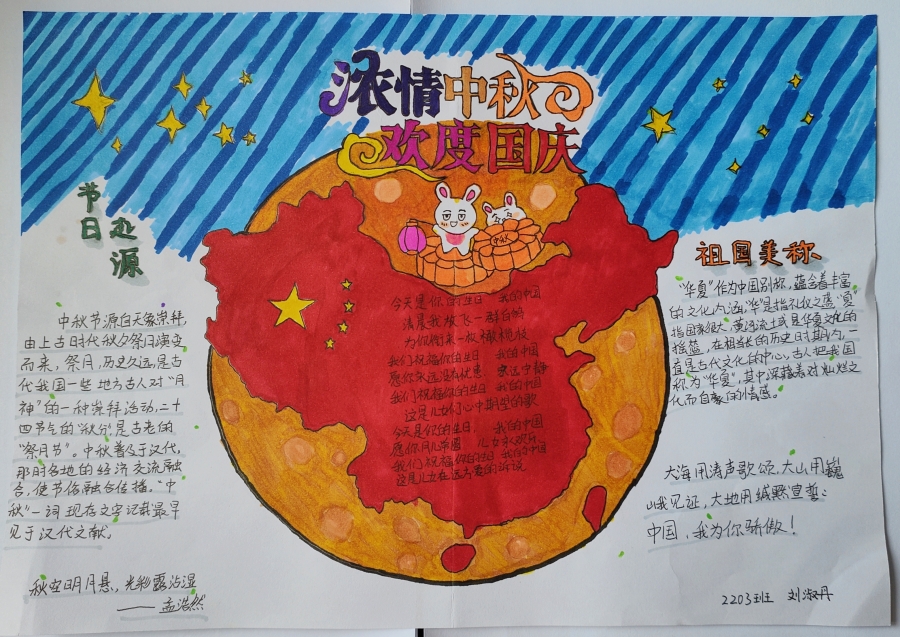 浓情中秋
欢度国庆
节日起源
中秋节源自天象崇拜,
由上古时代秋夕祭月演变
而来,祭月,历史久远,是古
代我国一些地方古人对“月
神”的一种崇拜活动,二十
四节气的“秋分”是古老的
“祭月节”。中秋普及于汉代,
那时各地的经济交流融
合,使节俗融合传播,“中
秋”一词现在文字记载最早
见于汉代文献。
秋空明月悬,光彩露沾湿
——孟浩然
中秋
今天是你的生日 我的中国
清晨我放飞一群白鸽
为你衔来一枚橄榄枝
我们祝福你的生日 我的中国
愿你永远没有忧患 永远宁静
我们祝福你的生日 我的中国
这是儿女们心中期望的歌
今天是你的生日, 我的中国
愿你月儿常圆 儿女永欢乐
我们祝福你的生日 我的中国
这是儿女在远方爱的诉说
祖国美称
“华夏”作为中国别称,蕴含着丰富
的文化内涵,“华”是指礼仪之盛,“夏”
指国家很大,黄河流域是华夏文化的
摇篮,在相当长的历史时期内,一
直是古代文化的中心,古人把我国
称为“华夏”,其中深藏着对灿烂文
化而自豪的情感。
大海用涛声歌颂,大山用巍
峨见证,大地用缄默宣誓:
中国,我为你骄傲!
2203班 刘淑丹